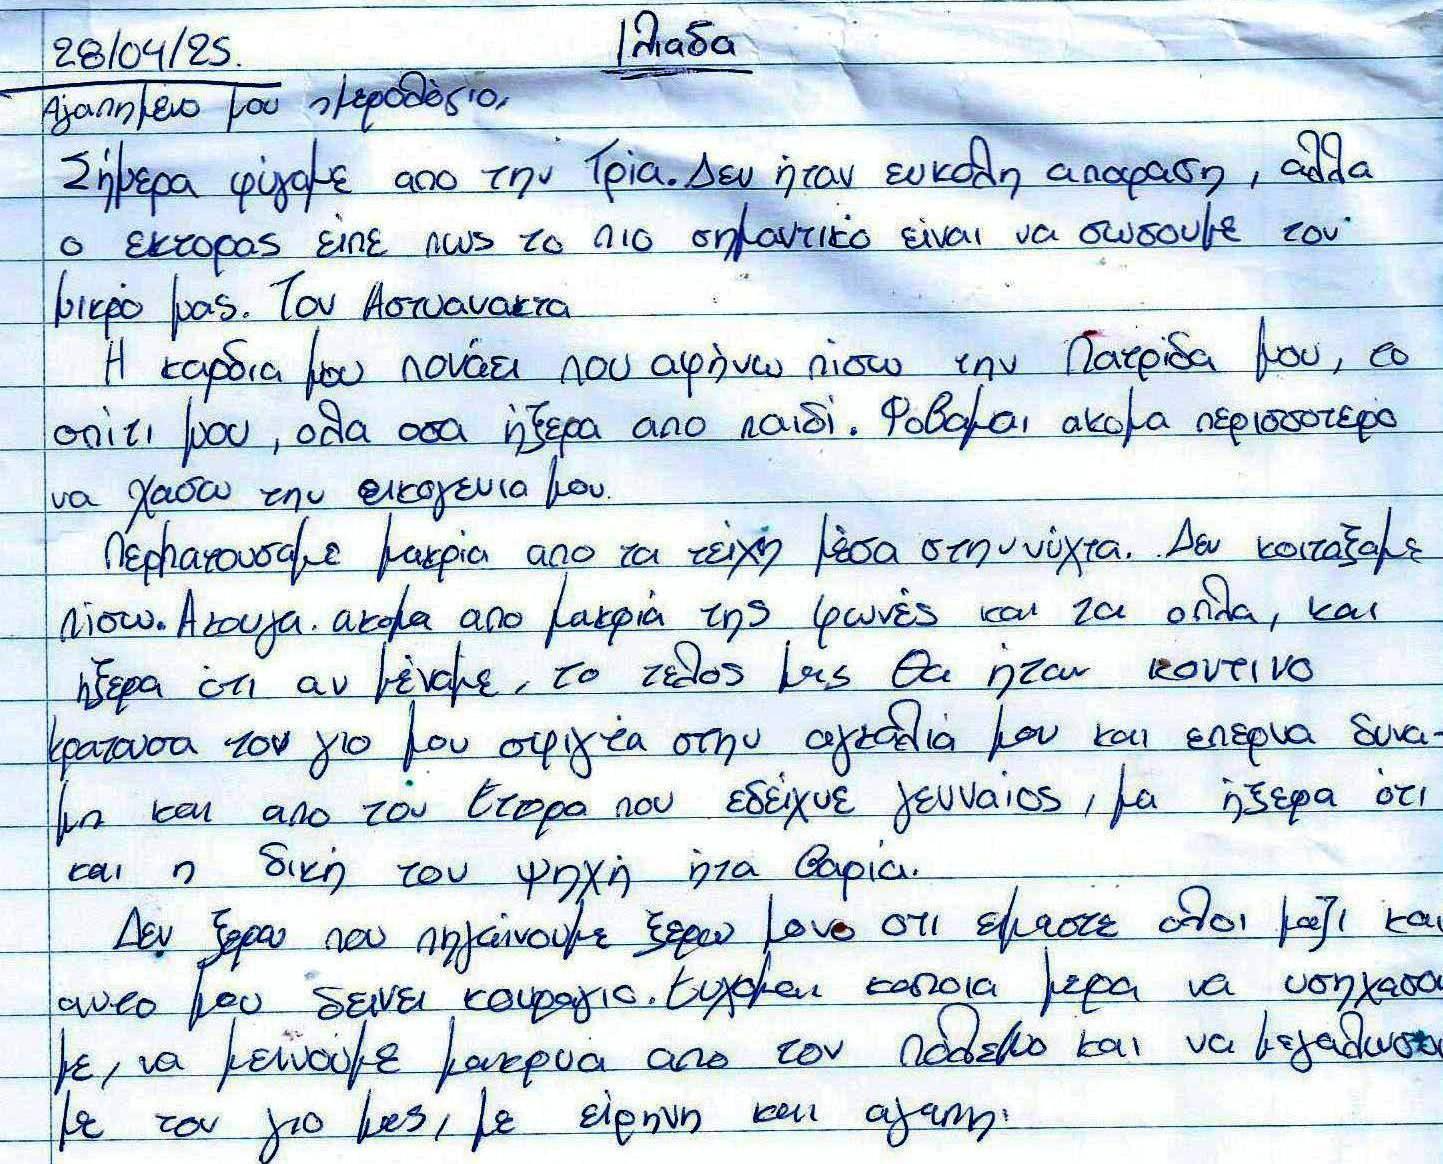 28/04/25. Ιλιαδα
Αγαπημενο μου ημερολόγιο,
Σήμερα φύγαμε απο την Τρία. Δεν ήταν ευκολη αποφαση, αλλα
ο εκτορας είπε πως το πιο σημαντικό είναι να σωσουμε τον
μικρό μας. Τον Αστυανακτα
Η καρδια μου πονάει που αφήνω πίσω την Πατρίδα μου, το
σπίτι μου, ολα οσα ήξερα απο παιδί. Φοβαμαι ακομα περισσοτερο
να χασω την οικογενια μου.
Περπατουσαμε μακρία απο τα τείχη μέσα στην νύχτα. Δεν κοιταξαμε
πίσω. Ακουγα ακομα απο μακριά της φωνές και τα οπλα, και
ήξερα ότι αν μέναμε, το τελος μας θα ήταν κοντινο
κρατουσα τον γιο μου σφιγτα στην αγκαλιά μου και επερνα δυνα-
μη και απο τον Εκτορα που εδείχνε γενναίος, μα ήξερα ότι
και η δική του ψηχή ήτα βαρία.
Δεν ξερω που πηγαίνουμε ξερω μονο οτι εμαστε ολοι μαζι και
αυτο μου δεινει κουραγιο. Ευχομαι καποια μερα να υσηχασου
με, να μεινουμε μακρυα απο τον πόλεμο και να μεγαλωσου
με τον γιο μας, με είρηνη και αγαπη.